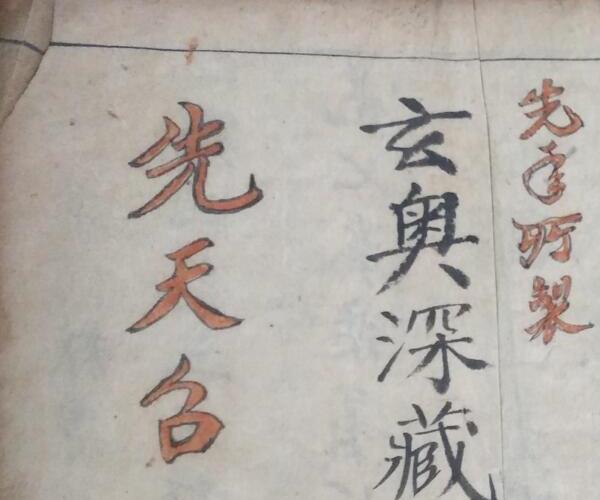 先年所製
玄奥深藏
先天召